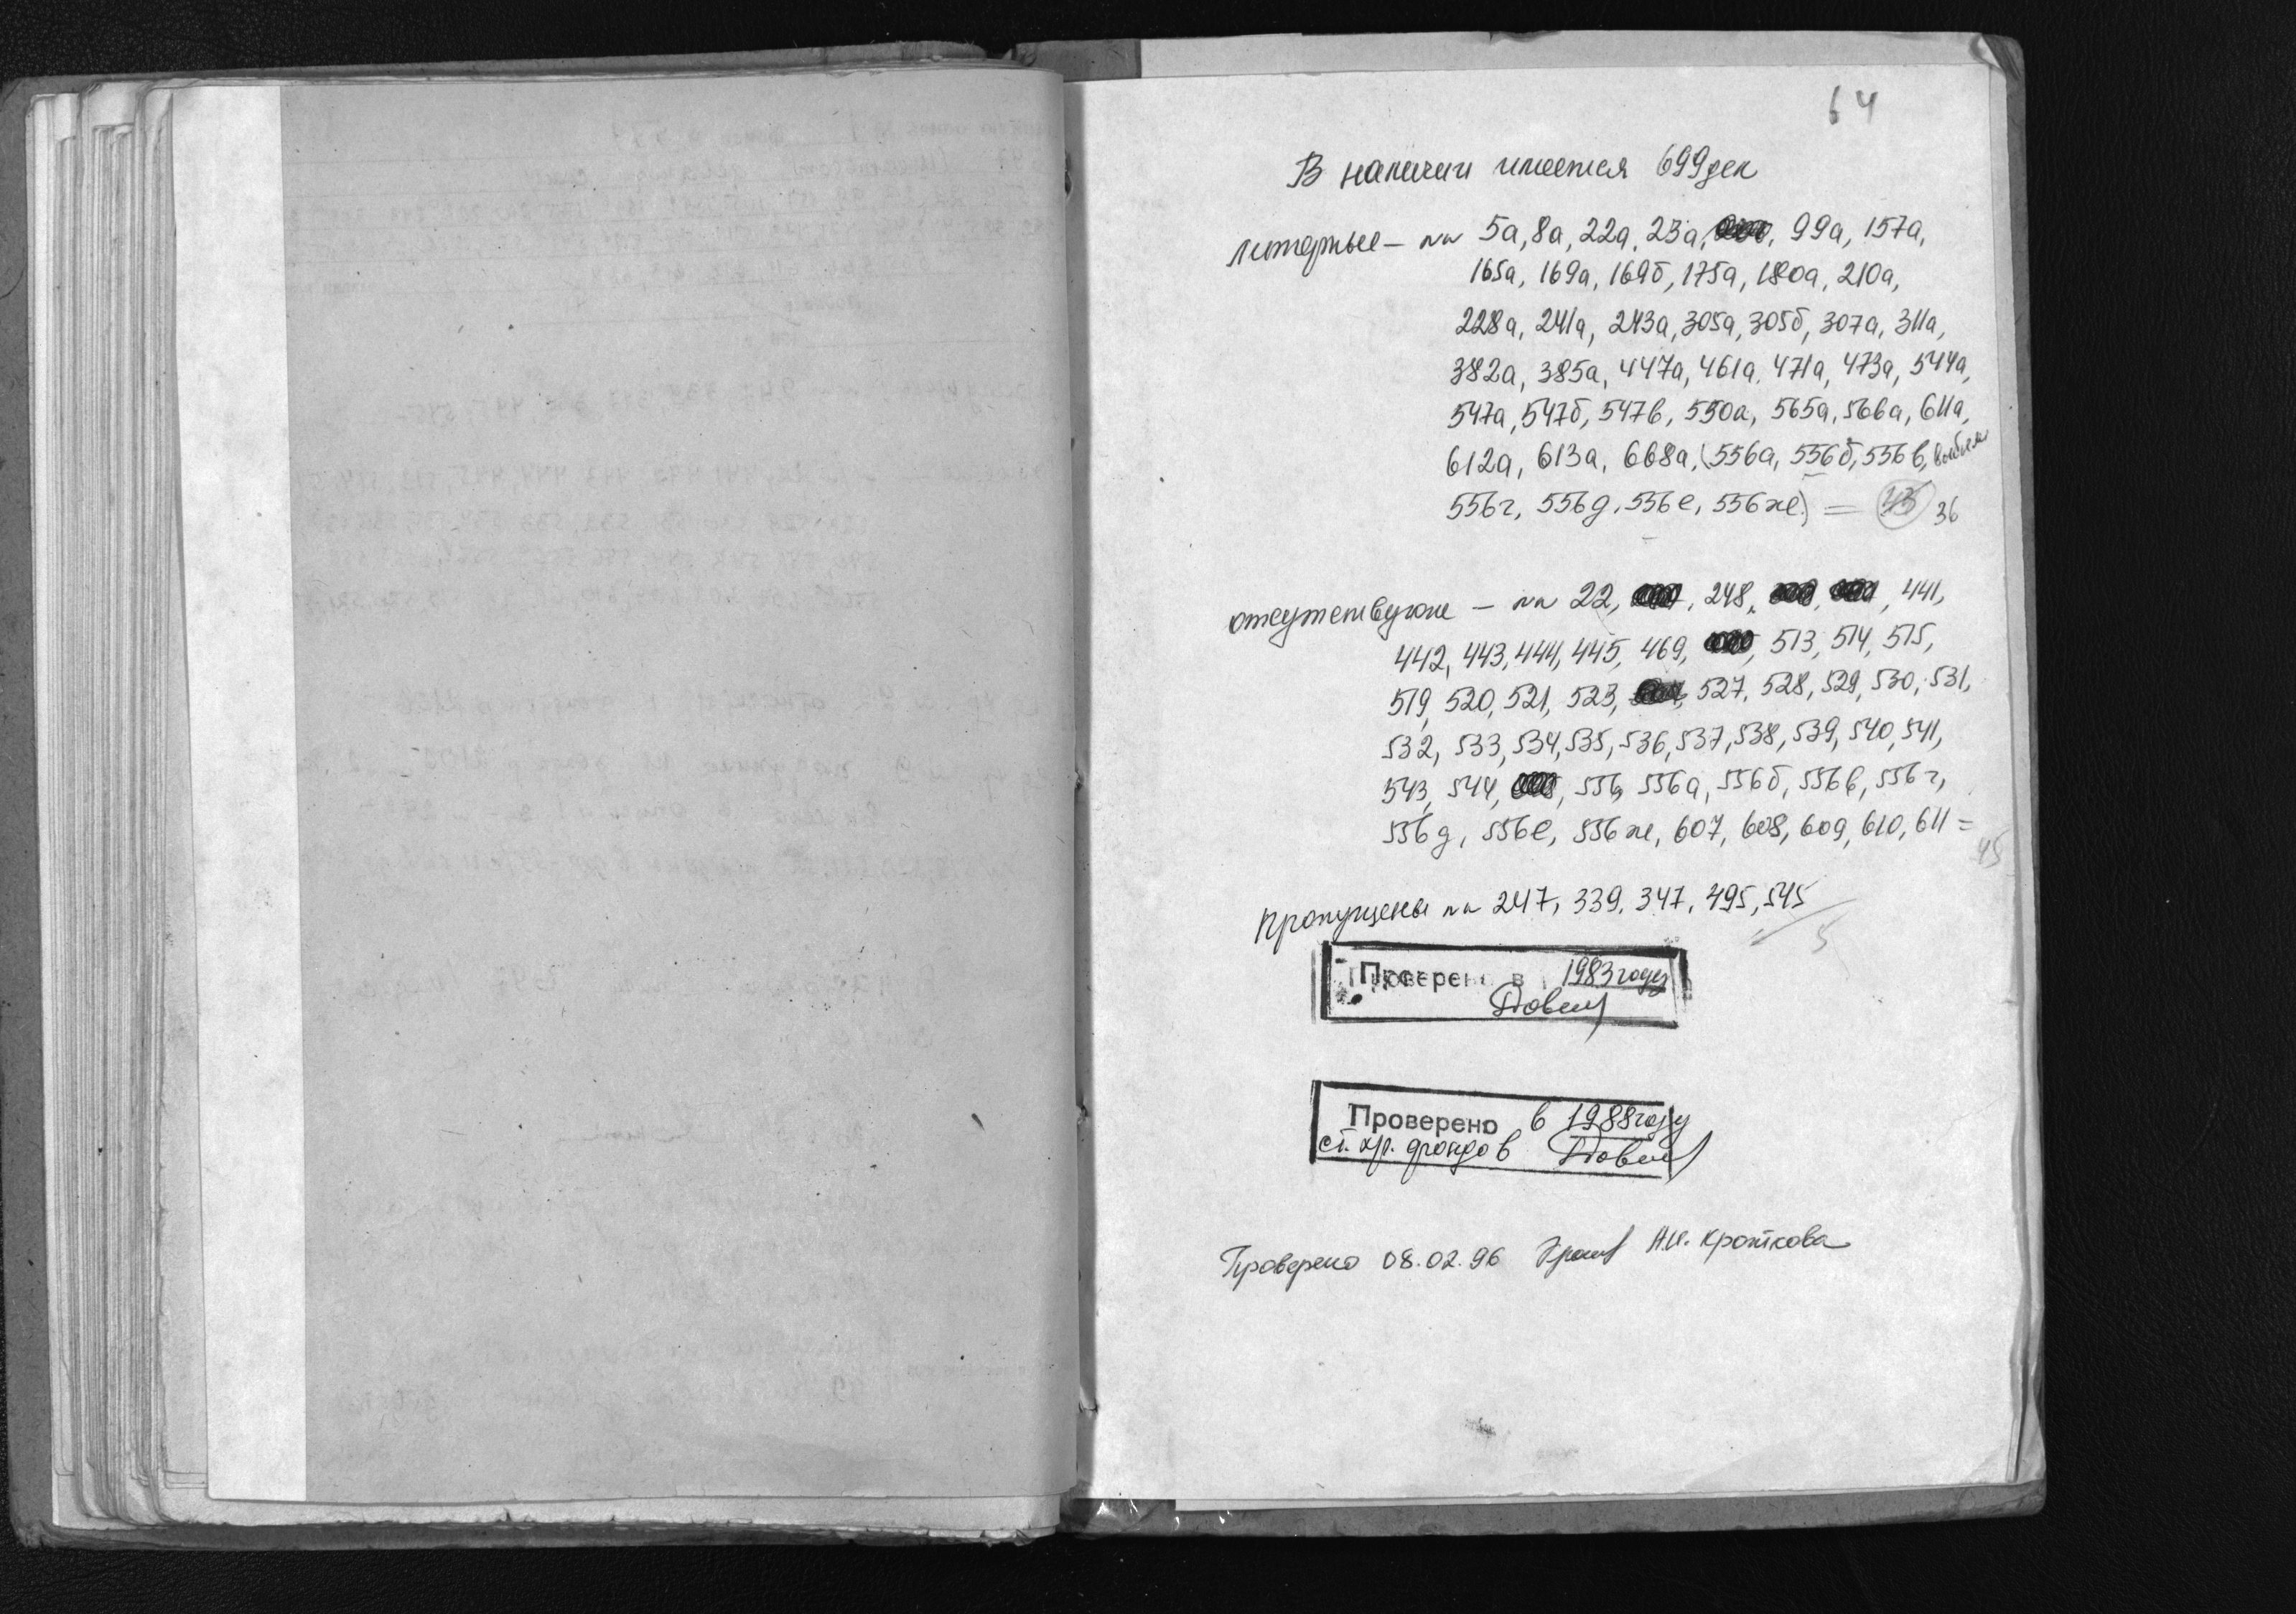 64
В наличии имеется 699 дел
литерные – №№ 5а, 8а, 22а, 23а, 99а, 157а,
165а, 169а, 169б, 175а, 180а, 210а,
228а, 241а, 243а, 305а, 305б, 307а, 311а,
382а, 385а, 447а, 461а, 471а, 473а, 544а,
547а, 547б, 547в, 550а, 565а, 566а, 611а,
612а, 613а, 668а, (556а, 556б, 556в,
556г, 556д, 556е, 556ж) = 43 36
отсутствующие – №№ 22, 248, 441,
442, 443, 444, 445, 469, 513, 514, 515,
519, 520, 521, 523, 527, 528, 529, 530, 531,
532, 533, 534, 535, 536, 537, 538, 539, 540, 541,
543, 544, 556, 556а, 556б, 556в, 556г,
556д, 556е, 556ж, 607, 608, 609, 610, 611 =
45
Пропущены №№ 247, 339, 347, 495, 545
5
Проверено в 1983 году
Проверено в 1988 году
ст. хр. фондов
Проверено 08.02.96 А.И. Кроткова